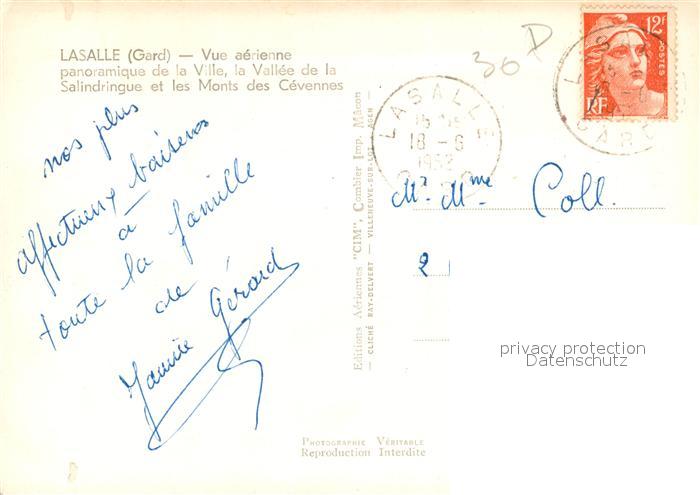 LASALLE (Gard) — Vue aérienne
panoramique de la Ville, la Vallée de la
Salindringue et les Monts des Cévennes
nos plus
affectueux baisers
à
toute la famille
de
Gérard
Editions Aériennes "CIM", Combier Imp. Mâcon
— CLICHÉ RAY-DELVERT — VILLENEUVE-SUR-LOT - AGEN —
30 D
LASALLE
18 - 6
1952
12F
POSTES
RF
GARD
Mr Mme Coll.
2
privacy protection
Datenschutz
PHOTOGRAPHIE VÉRITABLE
Reproduction Interdite